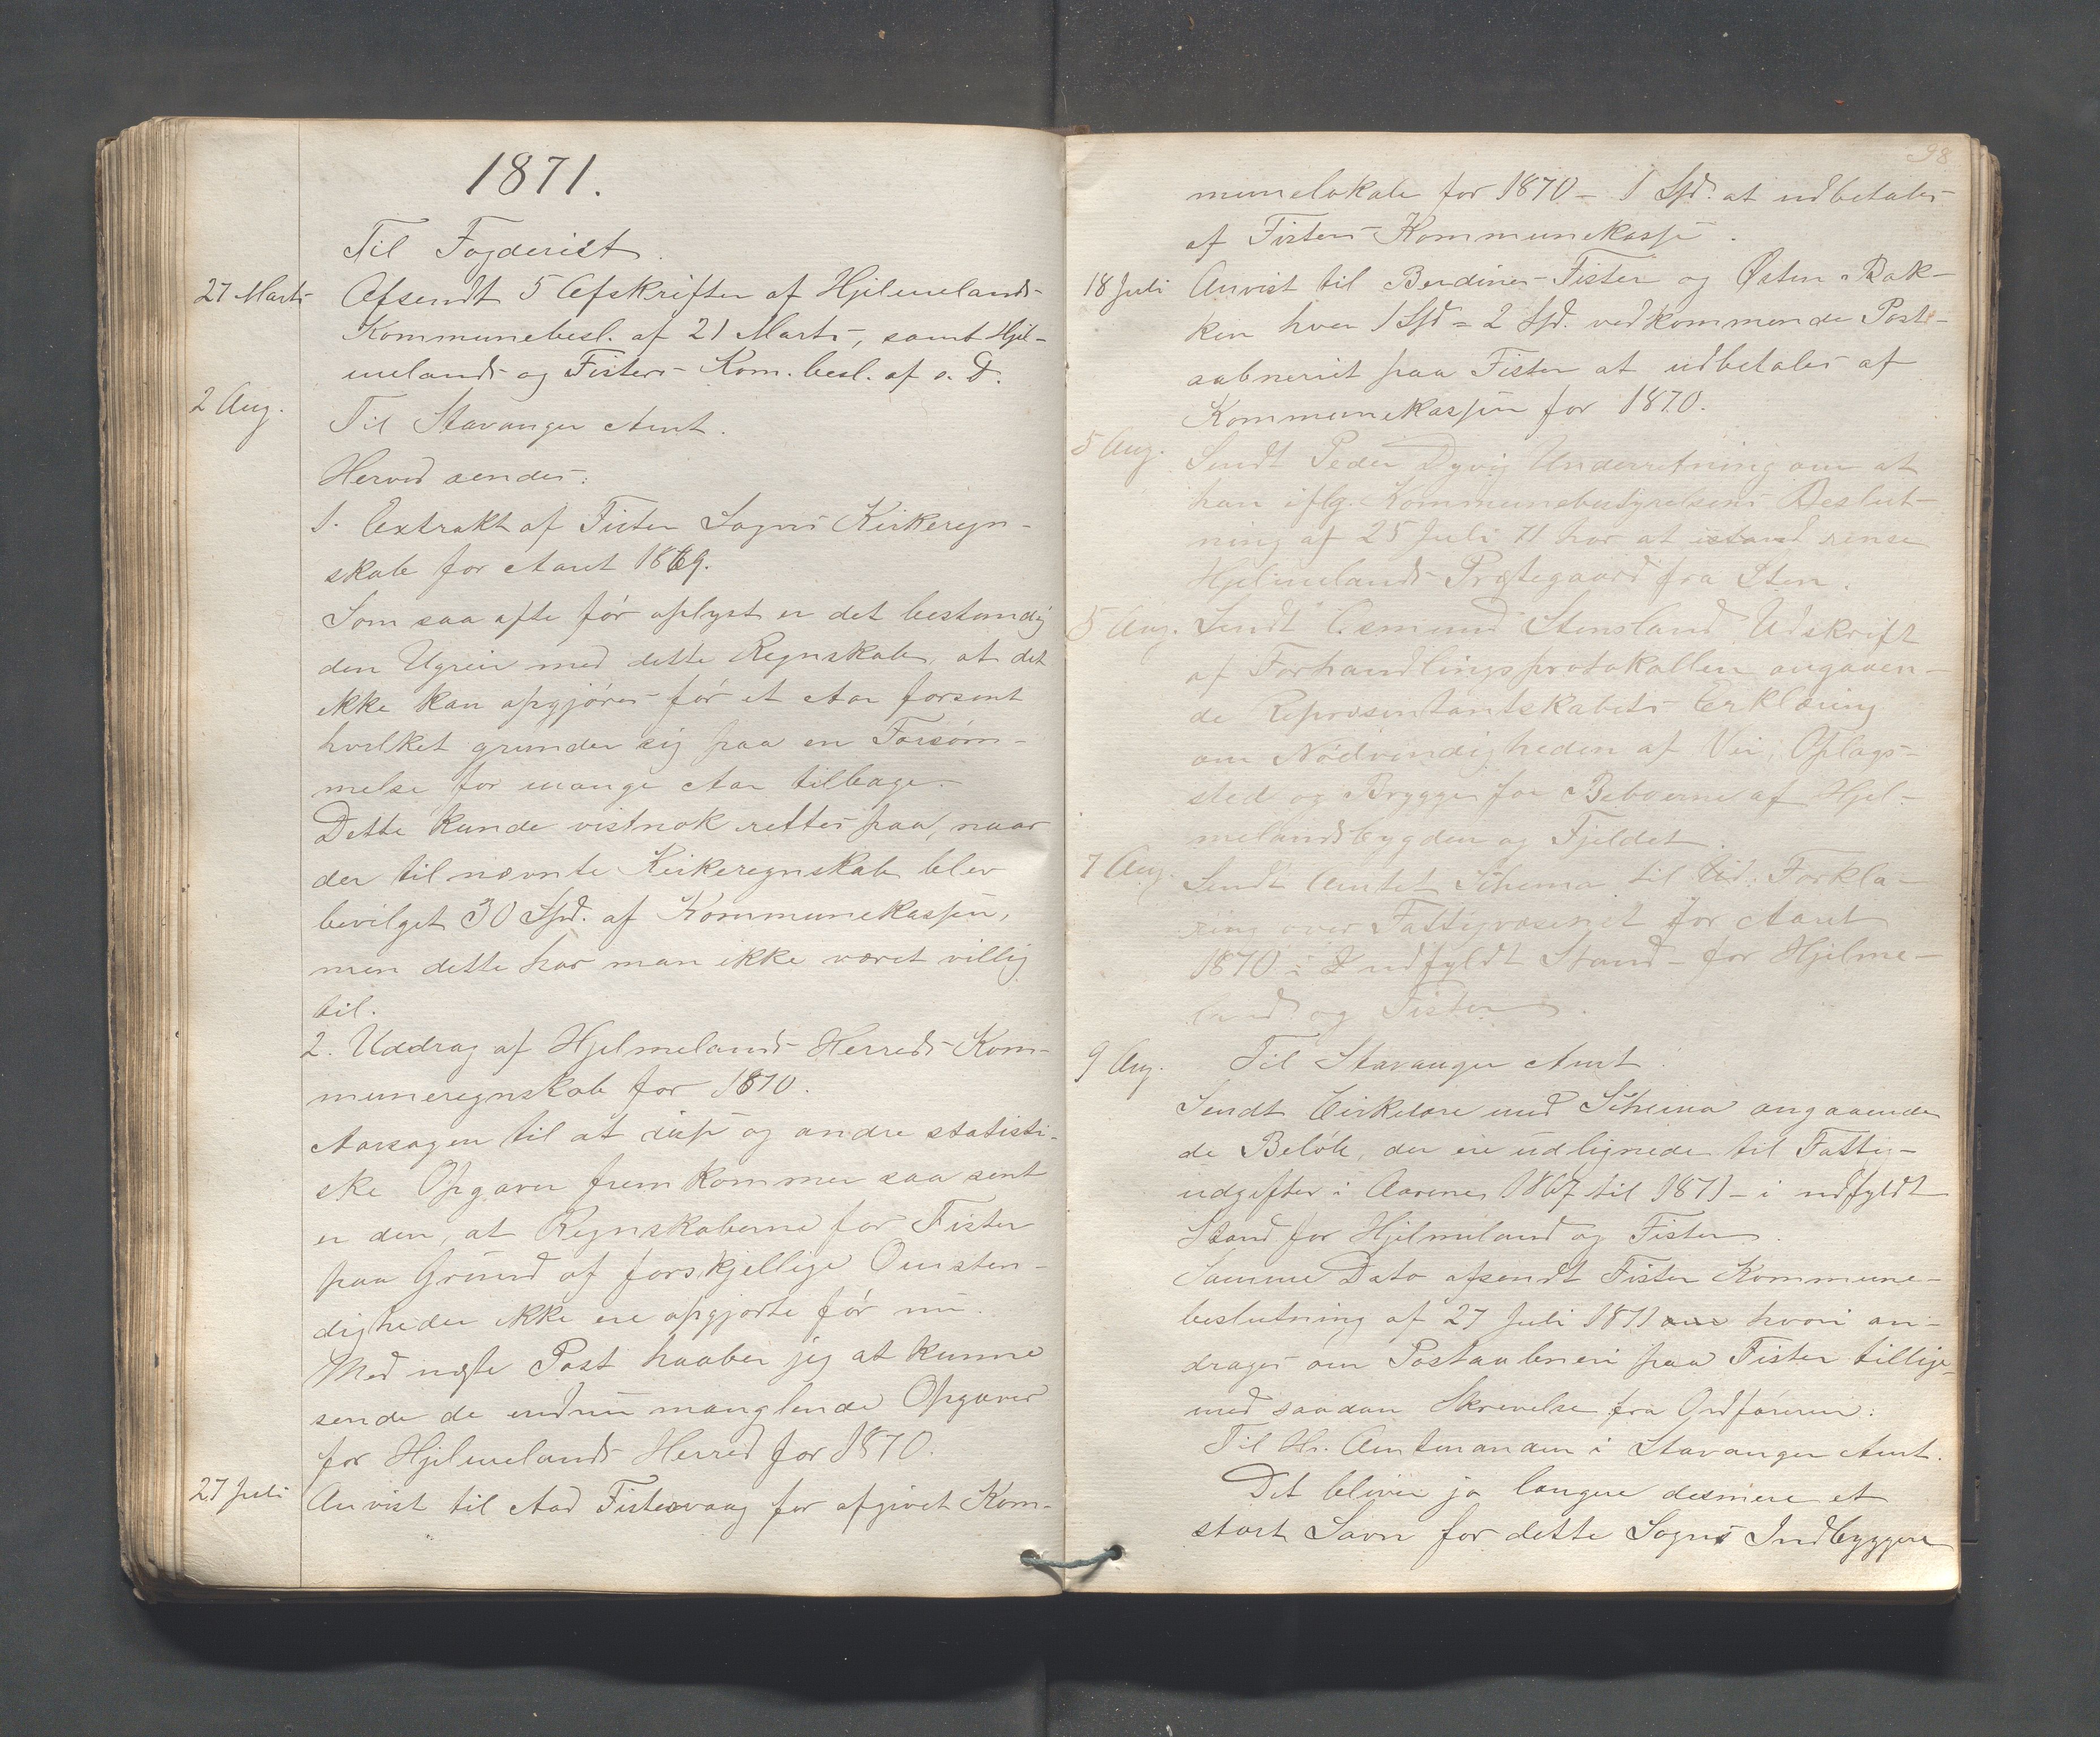 1871.
Til Fogderiet.
27 Marts Afsendt 5 Afskrifter af Hjelmelands
Kommunebesl. af 21 Marts, samt Hjel-
melands og Fisters Kom. besl. af s. D.
2 Aug. Til Stavanger Amt.
Herved sendes:
1. Extrakt af Fister Sogns Kirkeregn-
skab for Aaret 1869.
Som saa ofte før oplyst er det bestandig
den Ugrein med dette Regnskab, at det
ikke kan opgjøres før et Aar forsent
hvilket grunder sig paa en Forsøm-
melse for mange Aar tilbage.
Dette kunde vistnok rettes paa, naar
der til nævnte Kirkeregnskab blev
bevilget 30 Spd. af Kommunekassen,
men dette har man ikke været villig
til.
2. Uddrag af Hjelmelands Herreds Kom-
muneregnskab for 1870.
Aarsagen til at disse og andre statisti-
ske Opgaver fremkommer saa sent
er den, at Regnskaberne for Fister
paa Grund af forskjellige Omsten-
digheder ikke ere opgjorte før nu.
Med næste Post haaber jeg at kunne
sende de endnu manglende Opgaver
for Hjelmelands Herred for 1870.
27 Juli Anvist til Aad Fistervaag for afgivet Kom-
98
munelokale for 1870 - 1 Spd. at udbetales
af Fisters Kommunekasse.
18 Juli Anvist til Berdines Fister og Østen Bak-
ken hver 1 Spd = 2 Spd. vedkommende Post-
aabneriet paa Fister at udbetales af
Kommunekassen for 1870.
5 Aug. Sendt Peder Dyvig Underretning om at
han iflg. Kommunebestyrelsens Beslut-
ning af 25 Juli 71 har at istand rense
Hjelmelands Prestegaard fra Sten.
5 Aug. Sendt Osmund Stensland Udskrift
af Forhandlingsprotokollen angaaen-
de Repræsentantskabets Erklæring
om Nødvendigheden af Vei, Oplags-
sted og Brygge for Beboerne af Hjel-
melandsbygden og Fjeldet.
7 Aug. Sendt Amtet Schema til Forkla-
ring over Fattigvæsenet for Aaret
1870 i udfyldt Stand - for Hjelme-
land og Fister.
9 Aug. Til Stavanger Amt.
Sendt Cirkulære med Schema angaaende
de Beløb, der ere udlignede til Fattig-
udgifter i Aarene 1867 til 1871 - i udfyldt
Stand for Hjelmeland og Fister.
Samme Dato afsendt Fister Kommune-
beslutning af 27 Juli 1871 hvori an-
drages om Postaabneri paa Fister tillige-
med saadan Skrivelse fra Ordføreren:
Til Hr. Amtmanden i Stavanger Amt.
Det bliver jo længere desmere et
stort Savn for dette Sogns Indbyggere